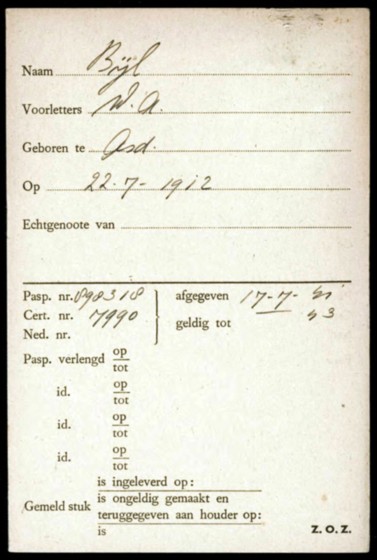 Naam Bijl
Voorletters W. A.
Geboren te Asd.
Op 22-7-1912
Echtgenoote van
Pasp. nr. 898318 afgegeven 17-7-41
Cert. nr. 7990 geldig tot 43
Ned. nr.
Pasp. verlengd op
tot
id. op
tot
id. op
tot
id. op
tot
is ingeleverd op:
Gemeld stuk is ongeldig gemaakt en
teruggegeven aan houder op:
is
Z. O. Z.